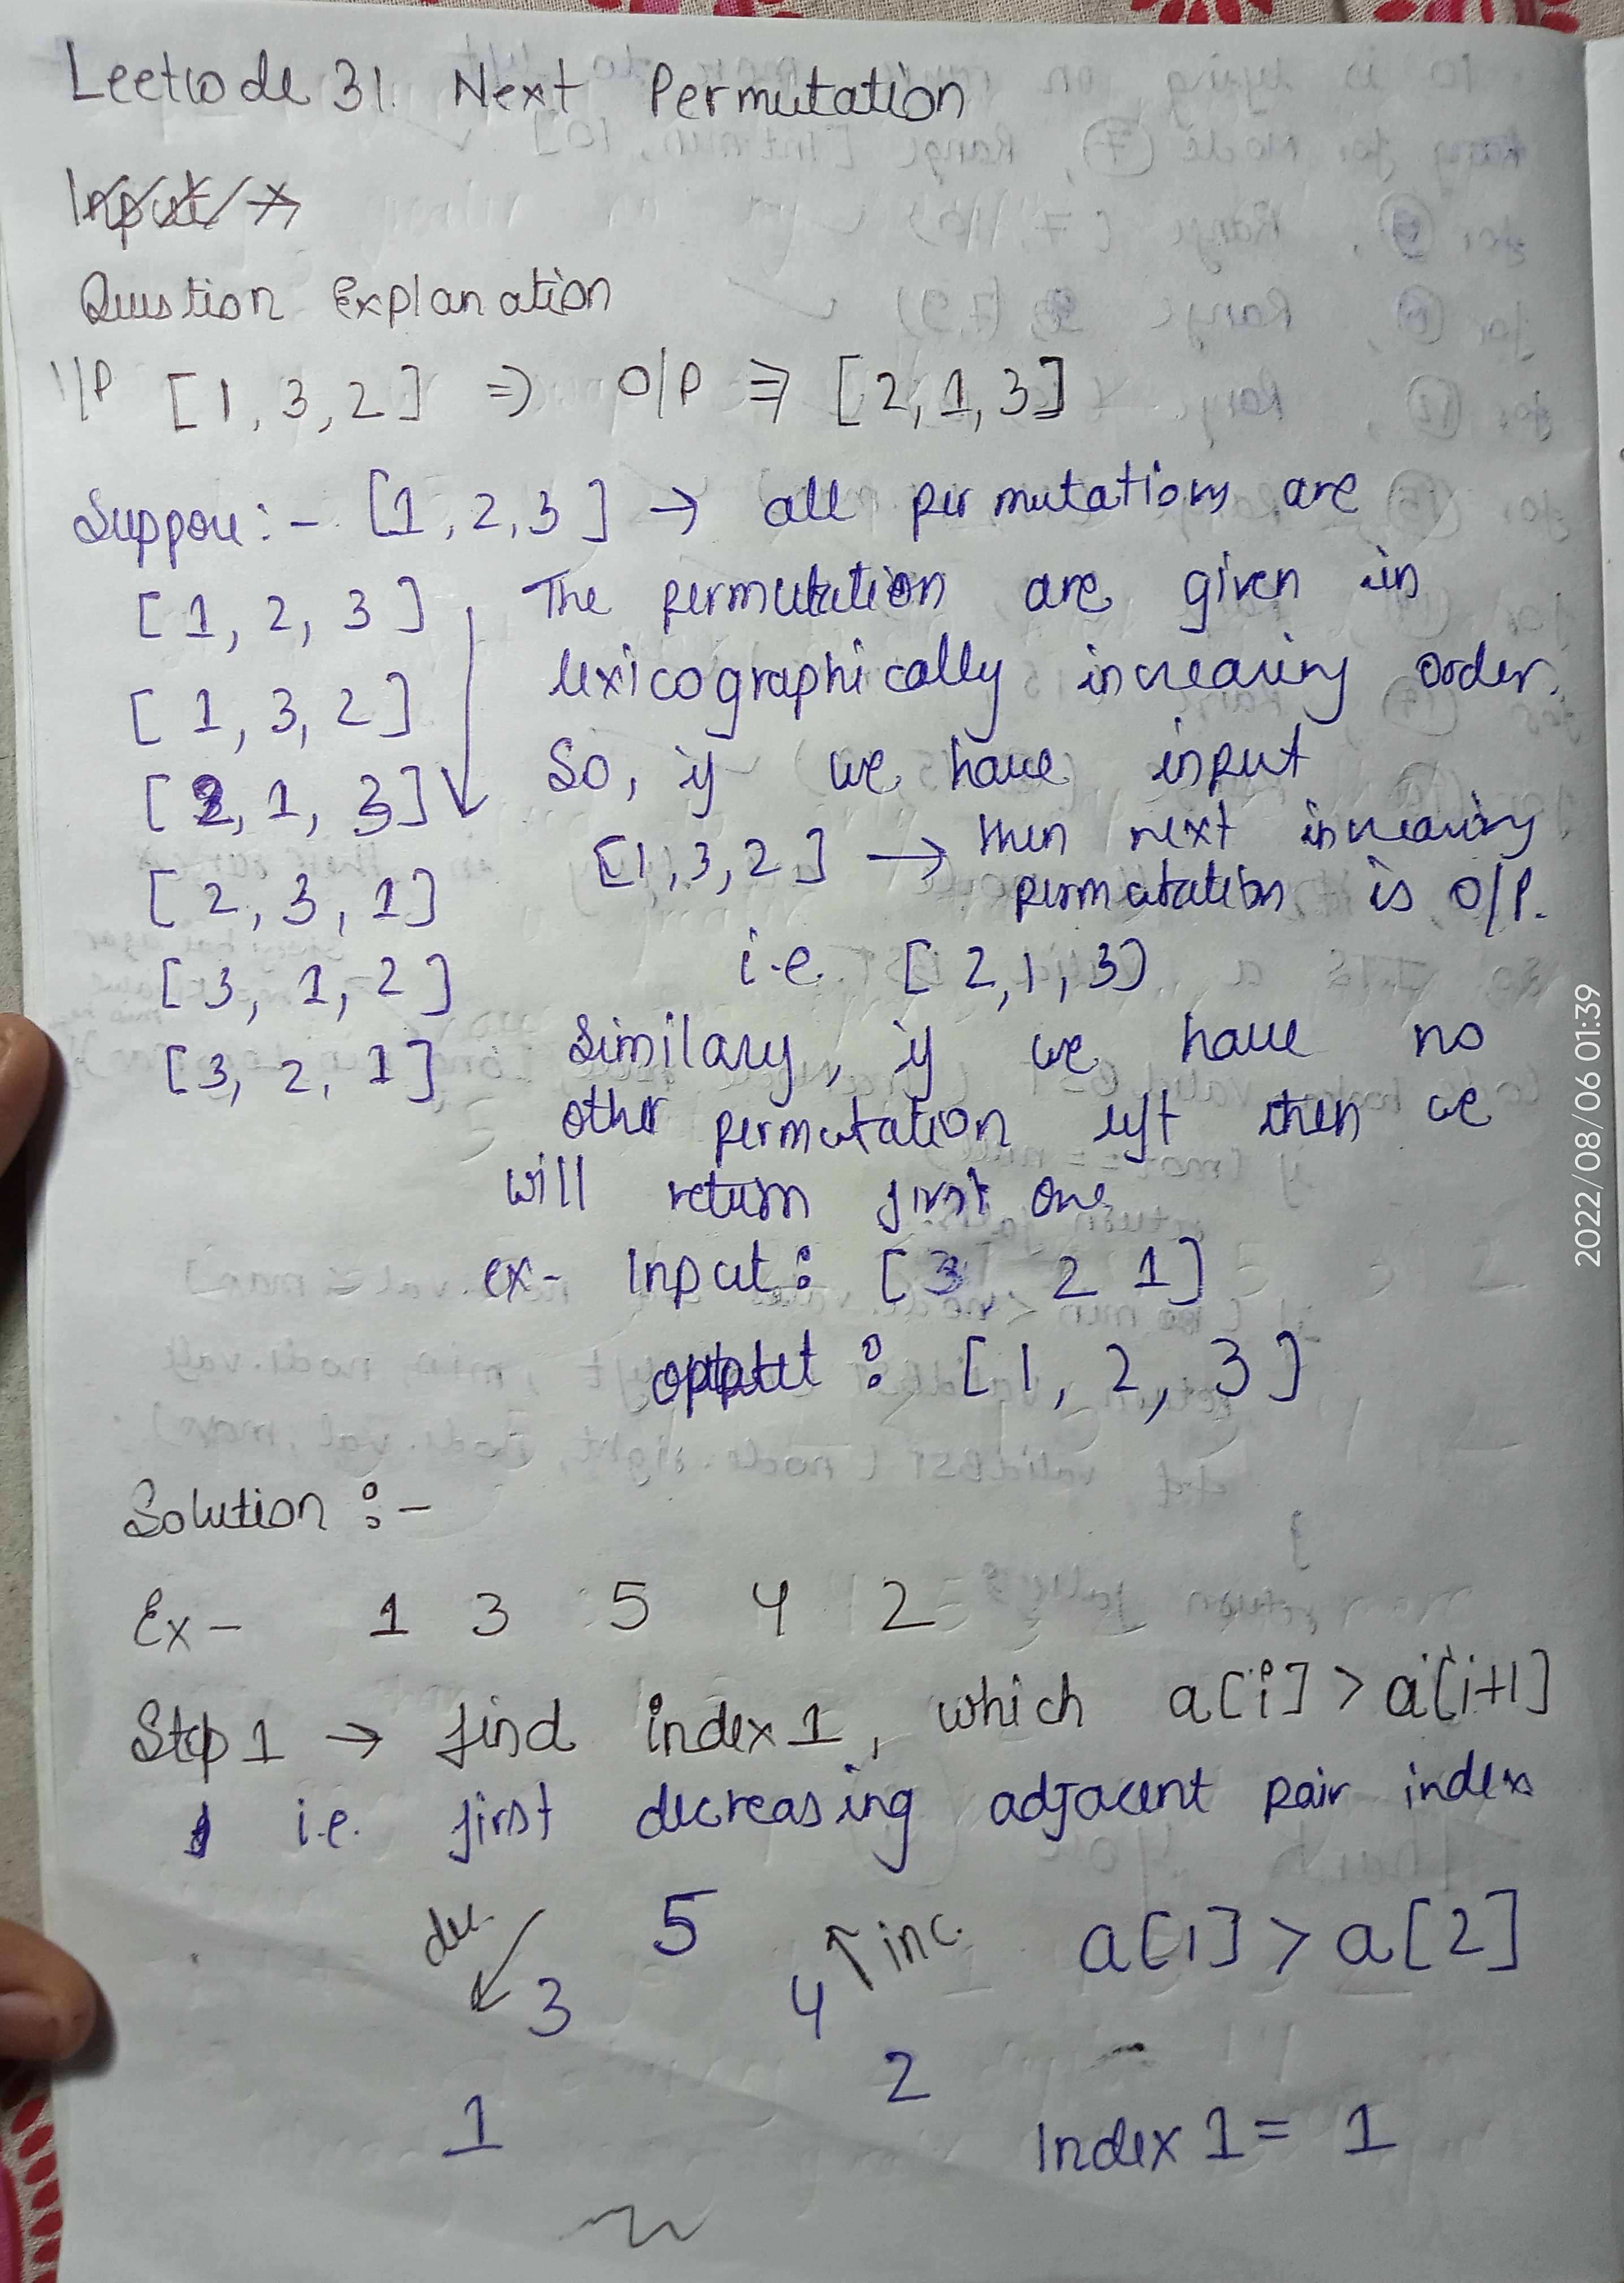 Leetcode 31. Next Permutation
Input →
Question Explanation
I/P [1, 3, 2] ⇒ O/P ⇒ [2, 1, 3]
Suppose :- [1, 2, 3] → all permutations are
[1, 2, 3]
[1, 3, 2]
[2, 1, 3]
[2, 3, 1]
[3, 1, 2]
[3, 2, 1]
The permutation are given in
lexicographically increasing order.
So, if we have input
[1, 3, 2] → then next increasing
permutation is O/P.
i.e. [2, 1, 3)
Similary, if we have no
other permutation left then we
will return first one
ex- Input : [3 2 1]
output : [1, 2, 3]
Solution :-
Ex - 1 3 5 4 2
Step 1 → find index 1, which a[i] > a[i+1]
i.e. first decreasing adjacent pair index
dec. 5 ↑ inc. a[1] > a[2]
↙ 3 4
2
1 Index 1 = 1
2022/08/06 01:39